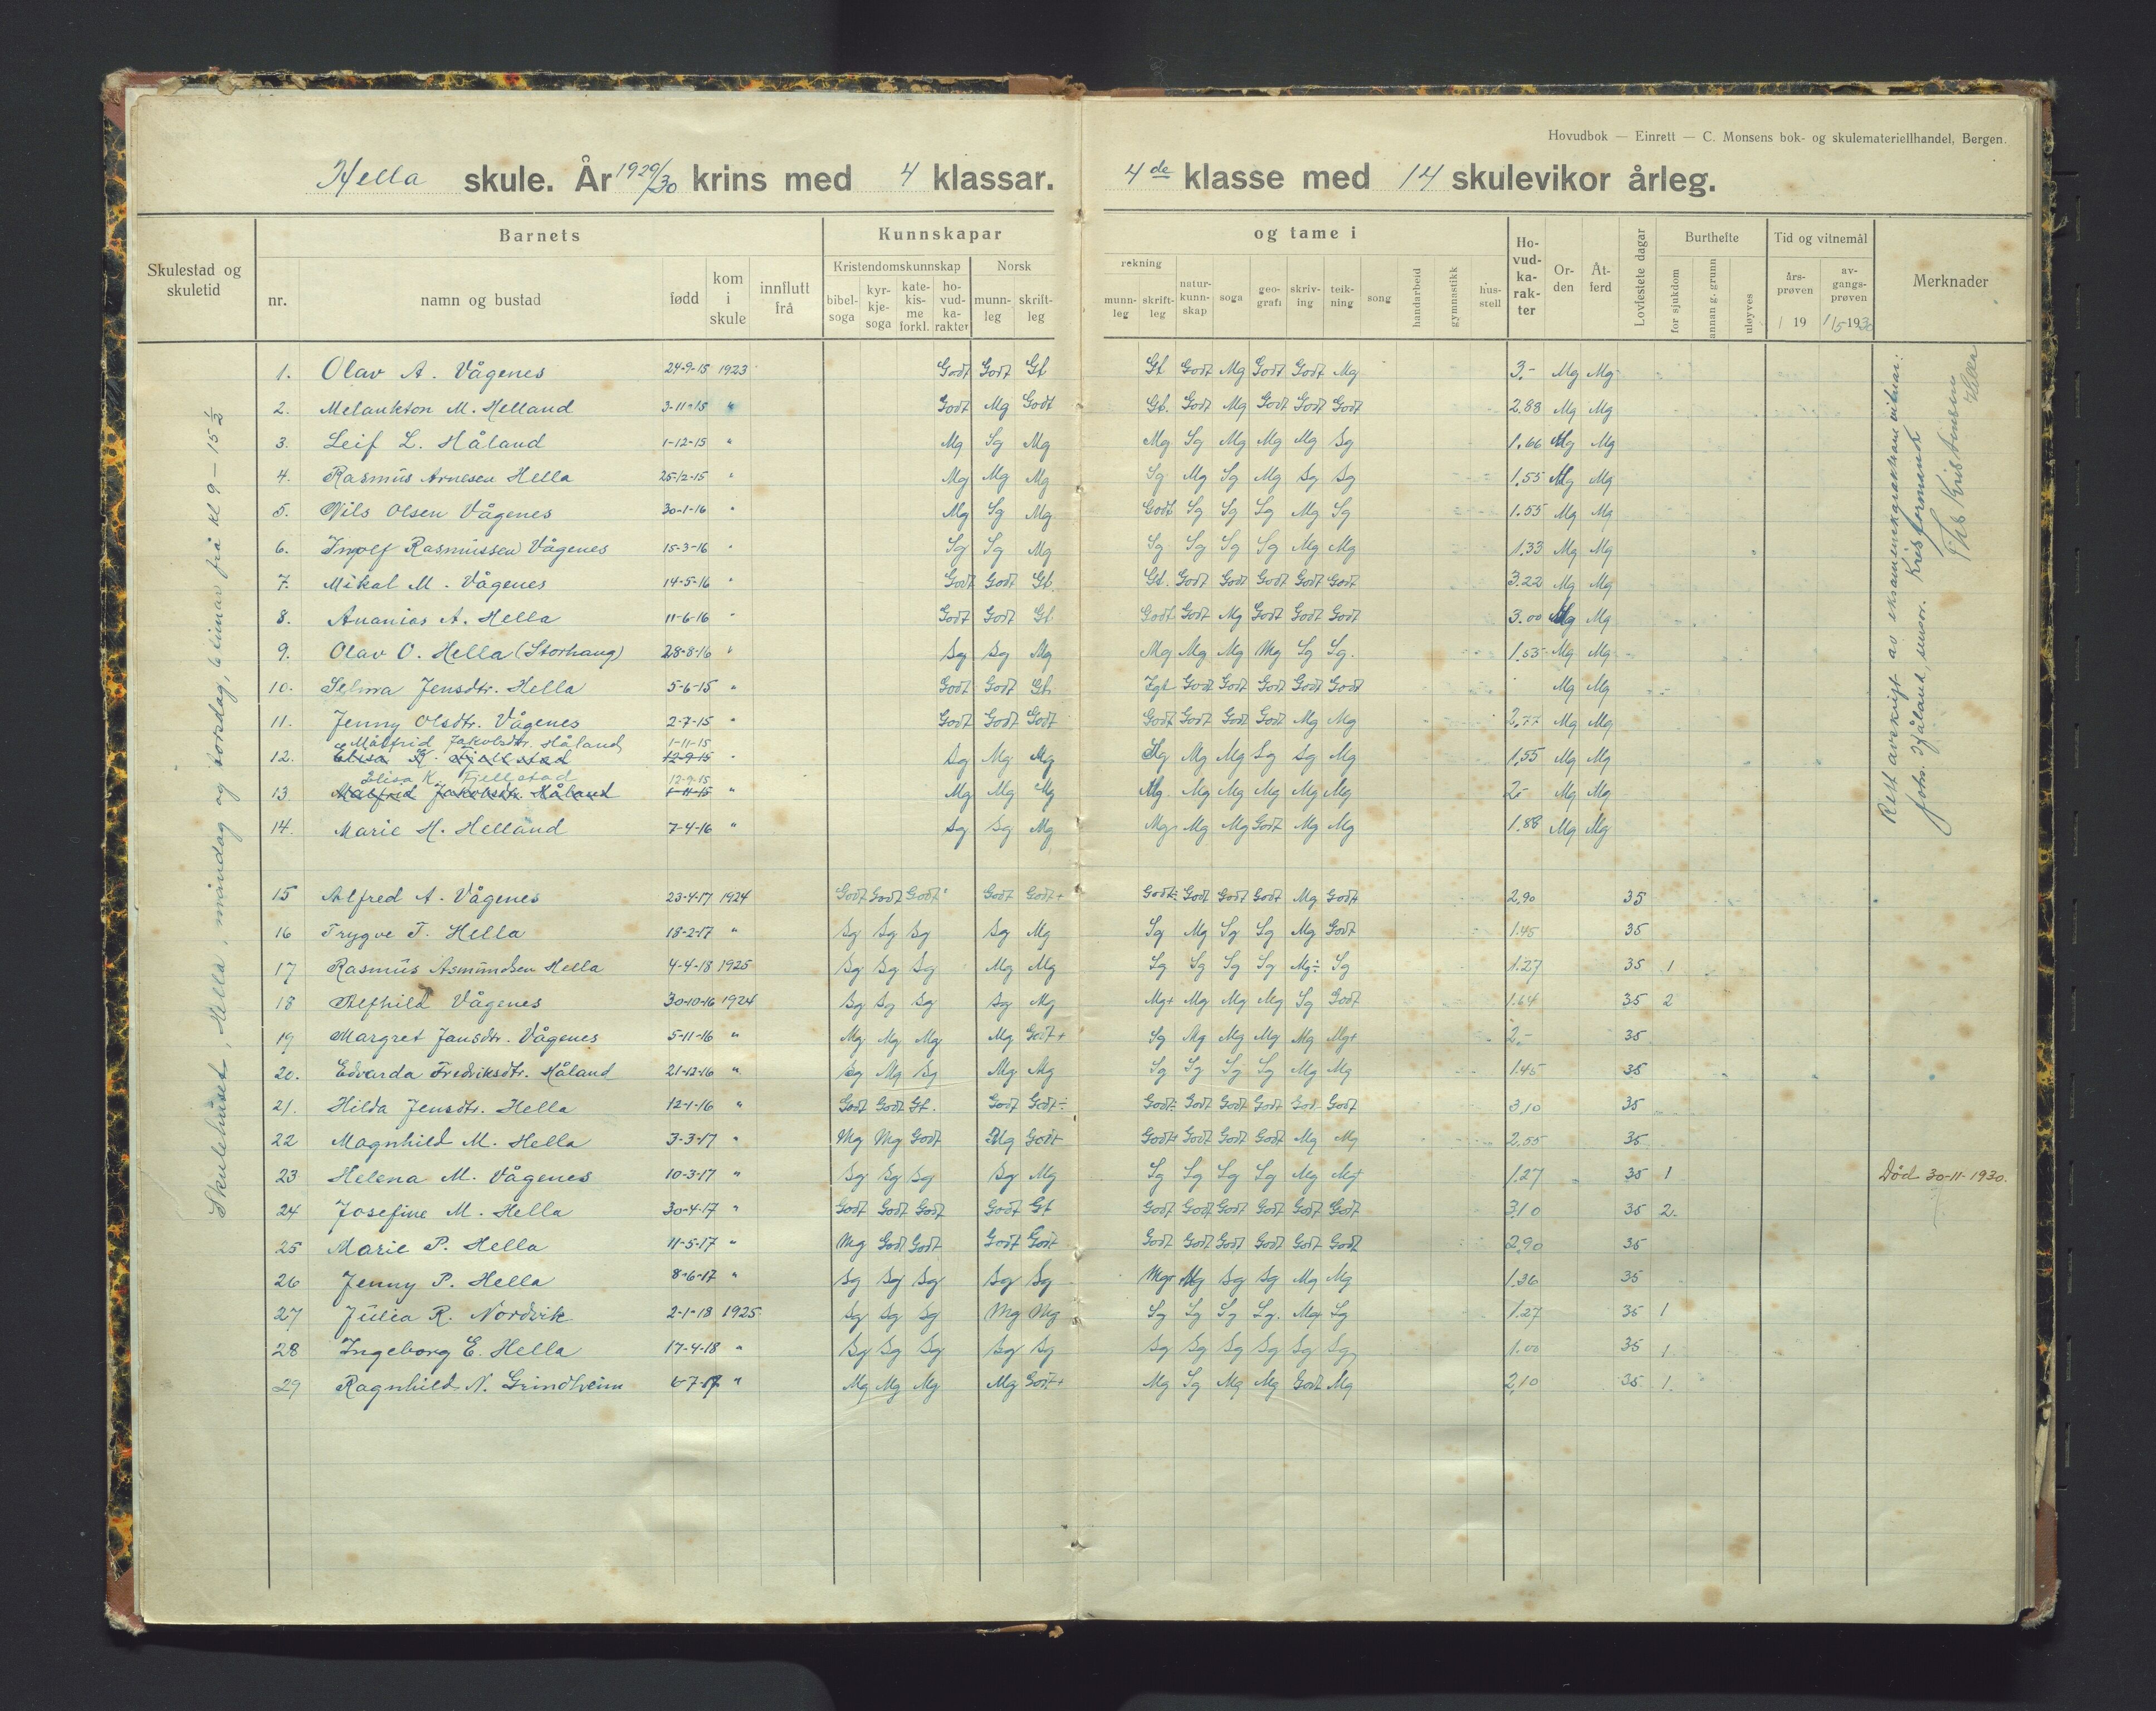 Hovudbok — Einrett — C. Monsens bok- og skulemateriellhandel, Bergen.
Hella skule. År 1929/30 krins med 4 klassar. 4de klasse med 14 skulevikor årleg.
Skulestad og skuletid
Barnets
nr. namn og bustad født kom i skule innflutt frå
Kunnskapar og tame i
Kristendomskunnskap Norsk rekning
bibel-soga kyr-kje-soga kate-kis-me forkl. ho-vud-ka-rakter munn-leg skrift-leg munn-leg skrift-leg natur-kunn-skap soga geo-grafi skriv-ing teik-ning song handarbeid gymnastikk hus-stell
Ho-vud-ka-rak-ter Or-den Åt-ferd Lovfestete dagar
Burthefte
for sjukdom annan g. grunn uløyves
Tid og vitnemål
års-prøven av-gangs-prøven
/ 19 1/5 1930
Merknader
Skulehuset, Hella, måndag og torsdag, 6 timar frå kl 9 - 15 1/2
1. Olav A. Vågenes 24-9-15 1923 Godt Godt Gt Gt Godt Mg Godt Godt Mg 3.- Mg Mg
2. Melankton M. Helland 3-11-15 " Godt Mg Godt Gt. Godt Mg Godt Godt Godt 2.88 Mg Mg
3. Leif L. Håland 1-12-15 " Mg Sg Mg Mg Sg Mg Mg Mg Sg 1.66 Mg Mg
4. Rasmus Arnesen Hella 25-12-15 " Mg Mg Mg Sg Mg Sg Mg Sg Sg 1.55 Mg Mg
5. Nils Olsen Vågenes 30-1-16 " Mg Sg Mg Godt Sg Sg Sg Mg Sg 1.55 Mg Mg
6. Ingolf Rasmussen Vågenes 15-3-16 " Sg Sg Mg Sg Sg Sg Sg Mg Mg 1.33 Mg Mg
7. Mikal M. Vågenes 14-5-16 " Godt Godt Gt. Gt. Godt Godt Godt Godt Godt 3.22 Mg Mg
8. Ananias A. Hella 11-6-16 " Godt Godt Gt Godt Godt Mg Godt Godt Godt 3.00 Mg Mg
9. Olav O. Hella (Storhaug) 28-8-16 " Sg Sg Mg Mg Mg Mg Mg Sg Sg. 1.55 Mg Mg
10. Selma Jensdtr. Hella 5-6-15 " Godt Godt Gt. Godt Godt Godt Godt Godt Mg Mg
11. Jenny Olsdtr. Vågenes 2-7-15 " Godt Godt Godt Godt Godt Godt Godt Mg Mg 2.77 Mg Mg
Målfrid Jakobsdtr. Håland 1-11-15
12. Elisa K. Fjellstad 12-9-15 " Sg Mg Mg Mg Mg Sg Sg Mg 1.55 Mg Mg
Elisa K. Fjellstad 12-9-15
13 Målfrid Jakobsdtr. Håland 1-11-15 " Mg Mg Mg Mg. Mg Mg Mg Mg Mg 2.- Mg Mg
14. Marie H. Helland 7-4-16 " Sg Sg Mg Mg Mg Mg Godt Mg Mg 1.88 Mg Mg
15 Alfred A. Vågenes 23-4-17 1924 Godt Godt Godt Godt Godt+ Godt÷ Godt Godt Godt Mg Godt 2,90 35
16 Trygve T. Hella 18-2-17 " Sg Sg Sg Sg Mg Sg Mg Sg Sg Mg Godt 1.45 35
17 Rasmus Asmundsen Hella 4-4-18 1925 Sg Sg Sg Mg Mg Sg Sg Sg Sg Mg÷ Sg 1.27 35 1
18 Alfhild Vågenes 30-10-16 1924 Sg Sg Sg Sg Mg Mg+ Mg Mg Mg Sg Godt 1.64 35 2
19 Margret Jansdtr. Vågenes 5-11-16 " Mg Mg Mg Mg Godt+ Sg Mg Mg Mg Mg Mg+ 2.- 35
20. Edvarda Fredriksdtr. Håland 21-12-16 " Sg Mg Sg Mg Mg Sg Sg Sg Sg Mg Mg 1.45 35
21. Hilda Jensdtr. Hella 12-1-16 " Godt Godt Gt. Godt Godt÷ Godt÷ Godt Godt Godt Godt Godt 3,10 35
22 Magnhild M. Hella 3-3-17 " Mg Mg Godt Mg Godt Godt+ Godt Godt Godt Mg Mg 2,55 35
23 Helena M. Vågenes 10-3-17 " Sg Sg Sg Sg Mg Sg Sg Sg Sg Mg Mg+ 1.27 35 1 Død 30-11-1930.
24 Josefine M. Hella 30-4-17 " Godt Godt Godt Godt Gt Godt Godt Godt Godt Godt Godt 3,10 35 2.
25 Marie P. Hella 11-5-17 " Mg Godt Godt Godt Godt Godt Godt Godt Godt Godt Godt 2,90 35
26 Jenny P. Hella 8-6-17 " Sg Sg Sg Sg Sg Mg+ Mg Sg Sg Mg Mg 1.36 35
27 Julia R. Nordvik 2-1-18 1925 Sg Sg Sg Mg Mg Sg Sg Sg Sg. Mg Sg 1.27 35 1
28 Ingeborg E. Hella 17-4-18 " Sg Sg Sg Sg Sg Sg Sg Sg Sg Sg Sg 1.00 35 1
29 Ragnhild N. Grindheim 7-17 " Mg Mg Mg Mg Godt+ Mg Sg Mg Mg Godt Mg 2,10 35 1.
Rett avskrift av eksamenskarakterar vitnar:
John. Håland, sensor. Kris. formend
Kristensen
Hella